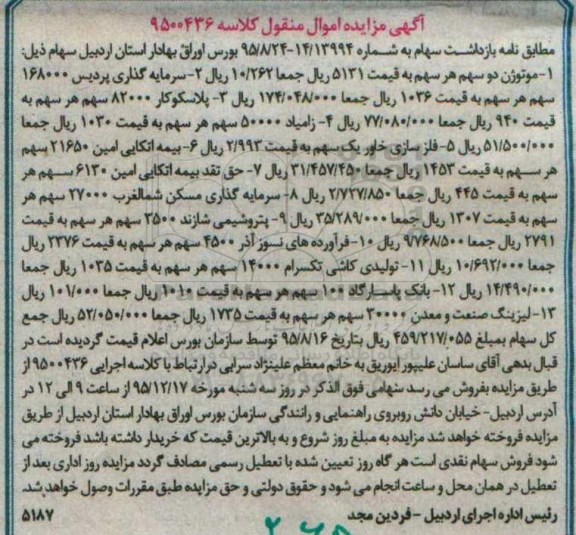 آگهی مزایده اموال منقول کلاسه ۹۵۰۰۴۳۶
مطابق نامه بازداشت سهام به شماره ۱۴/۱۳۹۹۴-۹۵/۸/۲۴ بورس اوراق بهادار استان اردبیل سهام ذیل:
۱-موتوژن دو سهم هر سهم به قیمت ۵۱۳۱ ریال جمعا ۱۰/۲۶۲ ریال ۲-سرمایه گذاری پردیس ۱۶۸۰۰۰
سهم هر سهم به قیمت ۱۰۳۶ ریال جمعا ۱۷۴/۰۴۸/۰۰۰ ریال ۳- پلاسکوکار ۸۲۰۰۰ سهم هر سهم به
قیمت ۹۴۰ ریال جمعا ۷۷/۰۸۰/۰۰۰ ریال ۴- زامیاد ۵۰۰۰۰ سهم هر سهم به قیمت ۱۰۳۰ ریال جمعا
۵۱/۵۰۰/۰۰۰ ریال ۵- فلز سازی خاور یک سهم به قیمت ۲/۹۹۳ ریال ۶- بیمه اتکایی امین ۲۱۶۵۰ سهم
هر سهم به قیمت ۱۴۵۳ ریال جمعا ۳۱/۴۵۷/۴۵۰ ریال ۷- حق تقد بیمه اتکایی امین ۶۱۳۰ سهم هر
سهم به قیمت ۴۴۵ ریال جمعا ۲/۷۲۷/۸۵۰ ریال ۸- سرمایه گذاری مسکن شمالغرب ۲۷۰۰۰ سهم هر
سهم به قیمت ۱۳۰۷ ریال جمعا ۳۵/۲۸۹/۰۰۰ ریال ۹- پتروشیمی شازند ۳۵۰۰ سهم هر سهم به قیمت
۲۷۹۱ ریال جمعا ۹/۷۶۸/۵۰۰ ریال ۱۰- فرآورده های نسوز آذر ۴۵۰۰ سهم هر سهم به قیمت ۲۳۷۶ ریال
جمعا ۱۰/۶۹۲/۰۰۰ ریال ۱۱- تولیدی کاشی تکسرام ۱۴۰۰۰ سهم هر سهم به قیمت ۱۰۳۵ ریال جمعا
۱۴/۴۹۰/۰۰۰ ریال ۱۲- بانک پاسارگاد ۱۰۰ سهم هر سهم به قیمت ۱۰۱۰ ریال جمعا ۱۰۱/۰۰۰ ریال
۱۳- لیزینگ صنعت و معدن ۳۰۰۰۰ سهم هر سهم به قیمت ۱۷۳۵ ریال جمعا ۵۲/۰۵۰/۰۰۰ ریال جمع
کل سهام بمبلغ ۴۵۹/۲۱۷/۰۵۵ ریال بتاریخ ۹۵/۸/۱۶ توسط سازمان بورس اعلام قیمت گردیده است در
قبال بدهی آقای ساسان علیپور آیوریق به خانم معظم علینژاد سرابی در ارتباط با کلاسه اجرایی ۹۵۰۰۴۳۶ از
طریق مزایده بفروش می رسد سهامی فوق الذکر در روز سه شنبه مورخه ۹۵/۱۲/۱۷ از ساعت ۹ الی ۱۲ در
آدرس اردبیل- خیابان دانش روبروی راهنمایی و رانندگی سازمان بورس اوراق بهادار استان اردبیل از طریق
مزایده فروخته خواهد شد مزایده به مبلغ روز شروع و به بالاترین قیمت که خریدار داشته باشد فروخته می
شود فروش سهام نقدی است هر گاه روز تعیین شده با تعطیل رسمی مصادف گردد مزایده روز اداری بعد از
تعطیل در همان محل و ساعت انجام می شود و حقوق دولتی و حق مزایده طبق مقررات وصول خواهد شد.
رئیس اداره اجرای اردبیل - فردین مجد ۵۱۸۷